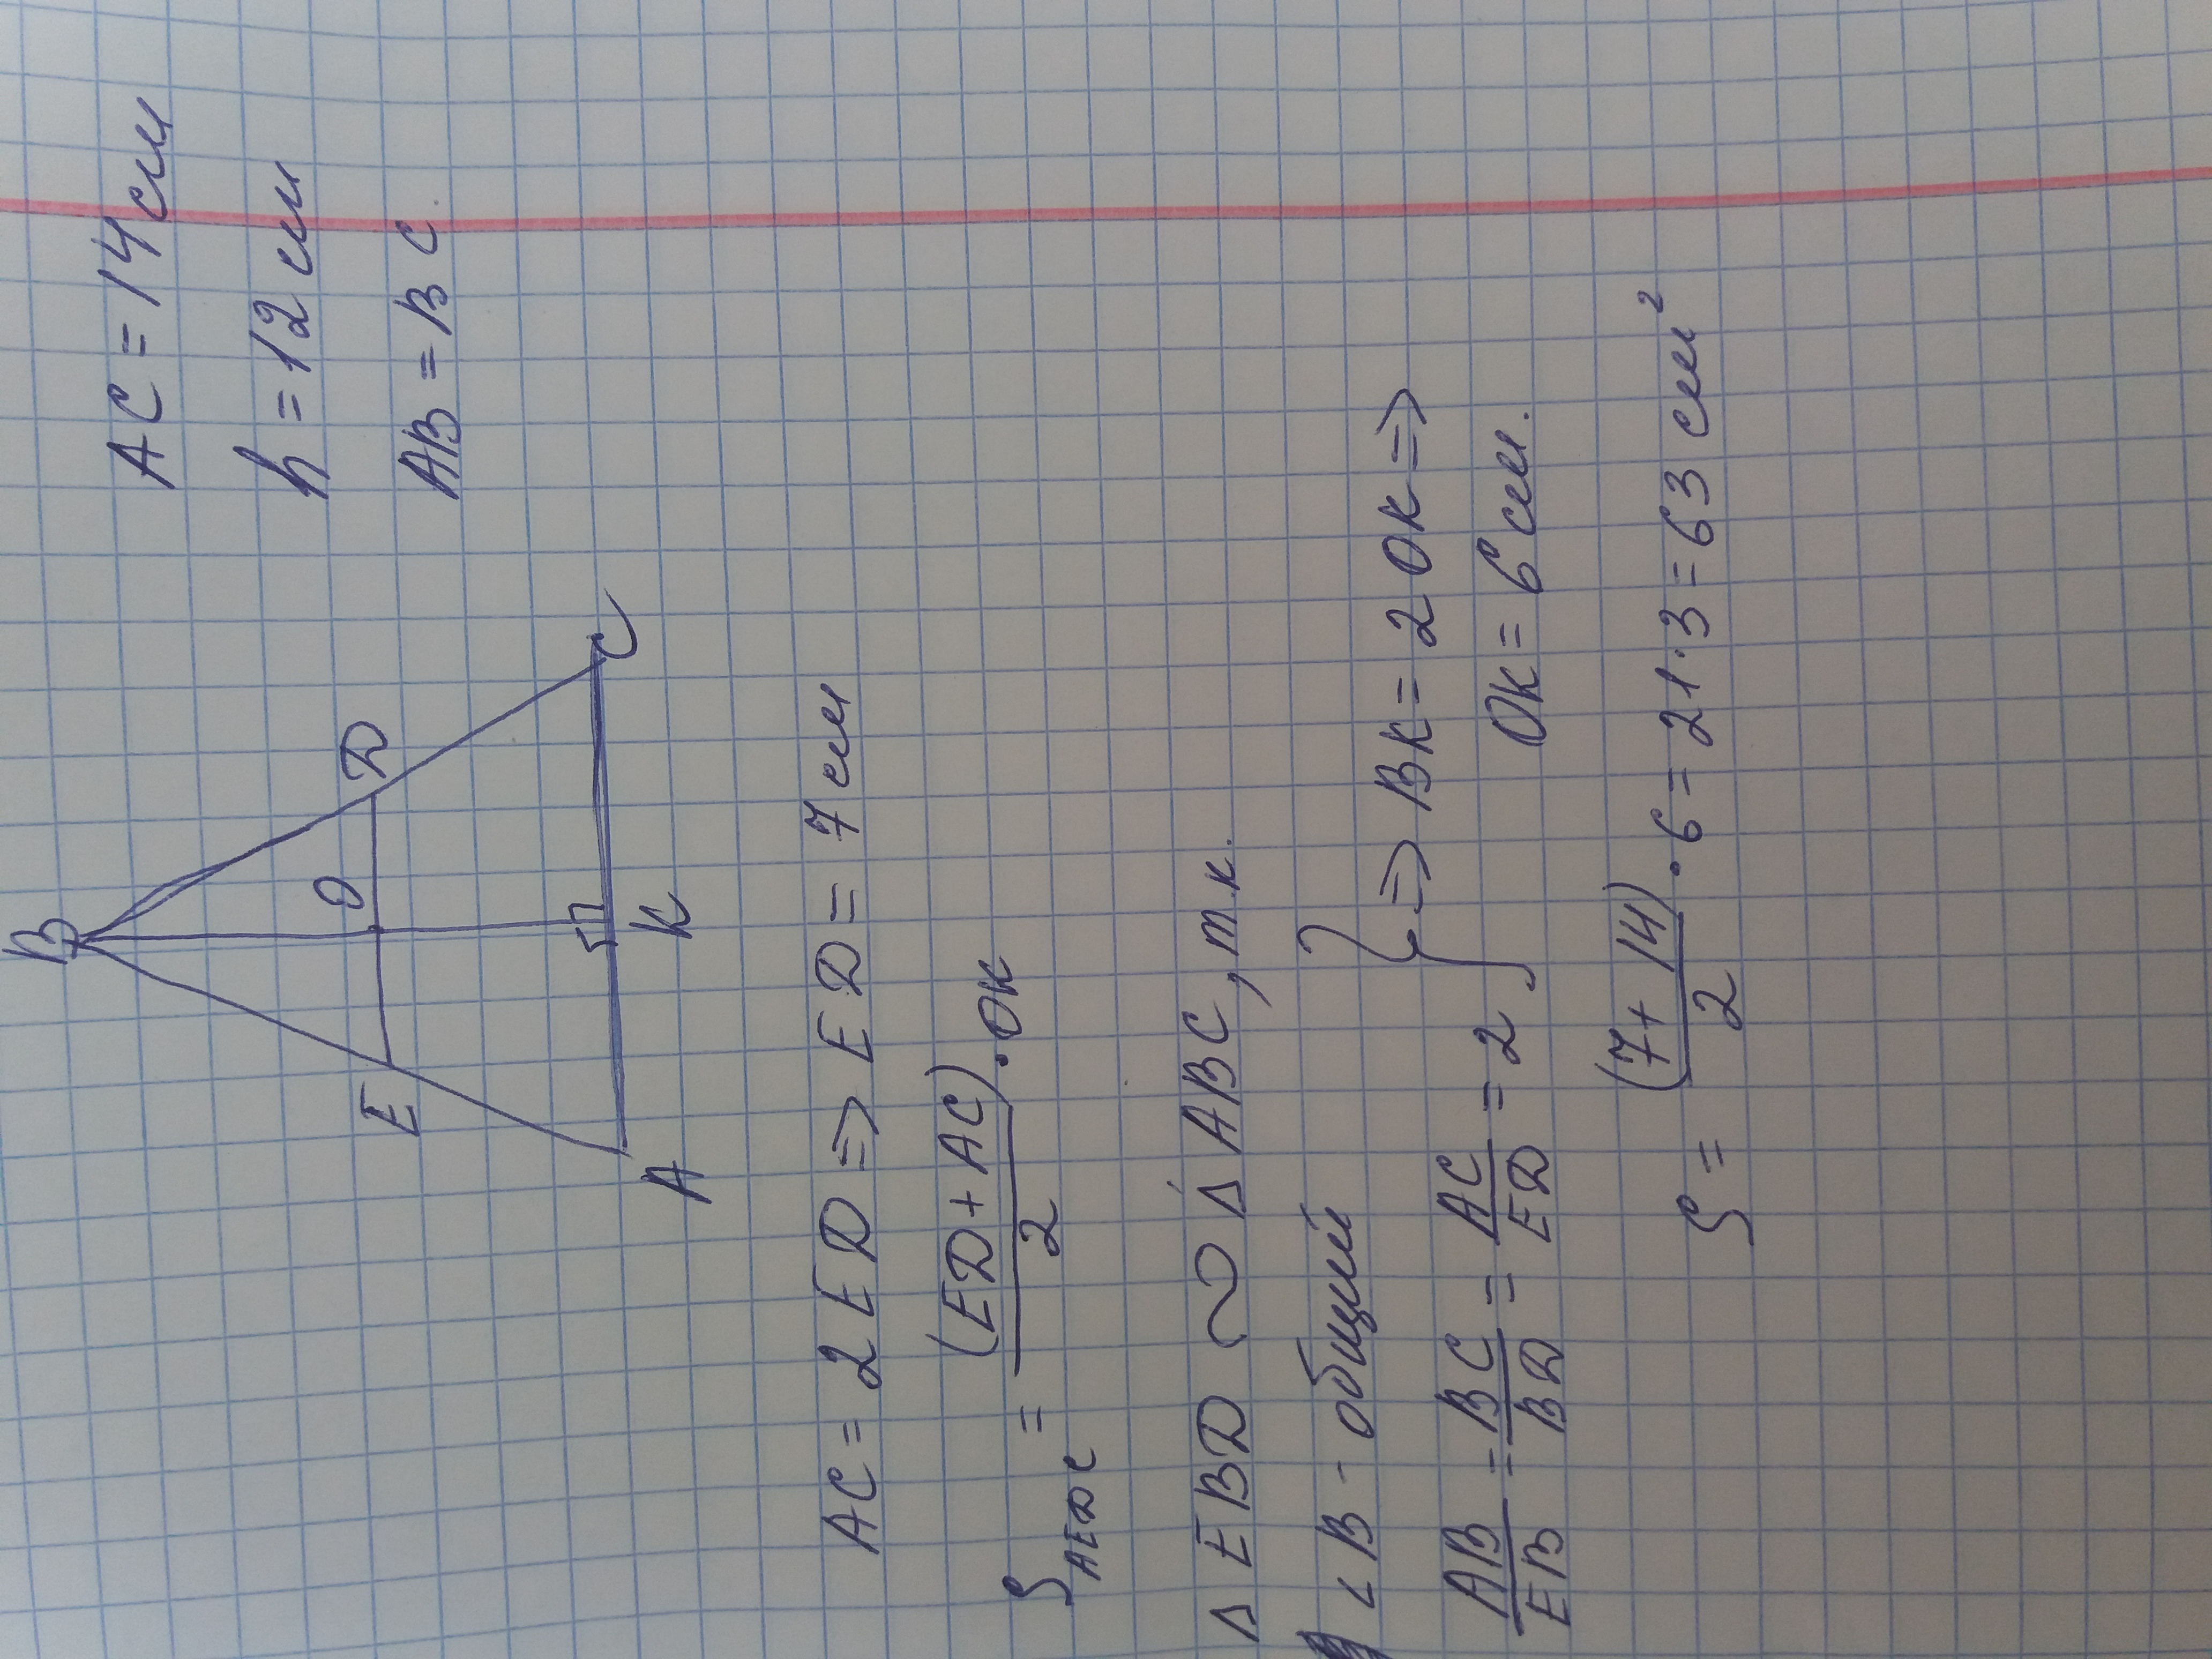 B
AC = 14 см
h = 12 см
AB = BC
E O D
A K C
AC = 2ED => ED = 7 см
S_AEDC = (ED + AC)/2 · OK
Δ EBD ∾ Δ ABC, т.к.
∠B - общий
AB/EB = BC/BD = AC/ED = 2 } => BK = 2OK =>
OK = 6 см.
S = (7 + 14)/2 · 6 = 21·3 = 63 см²